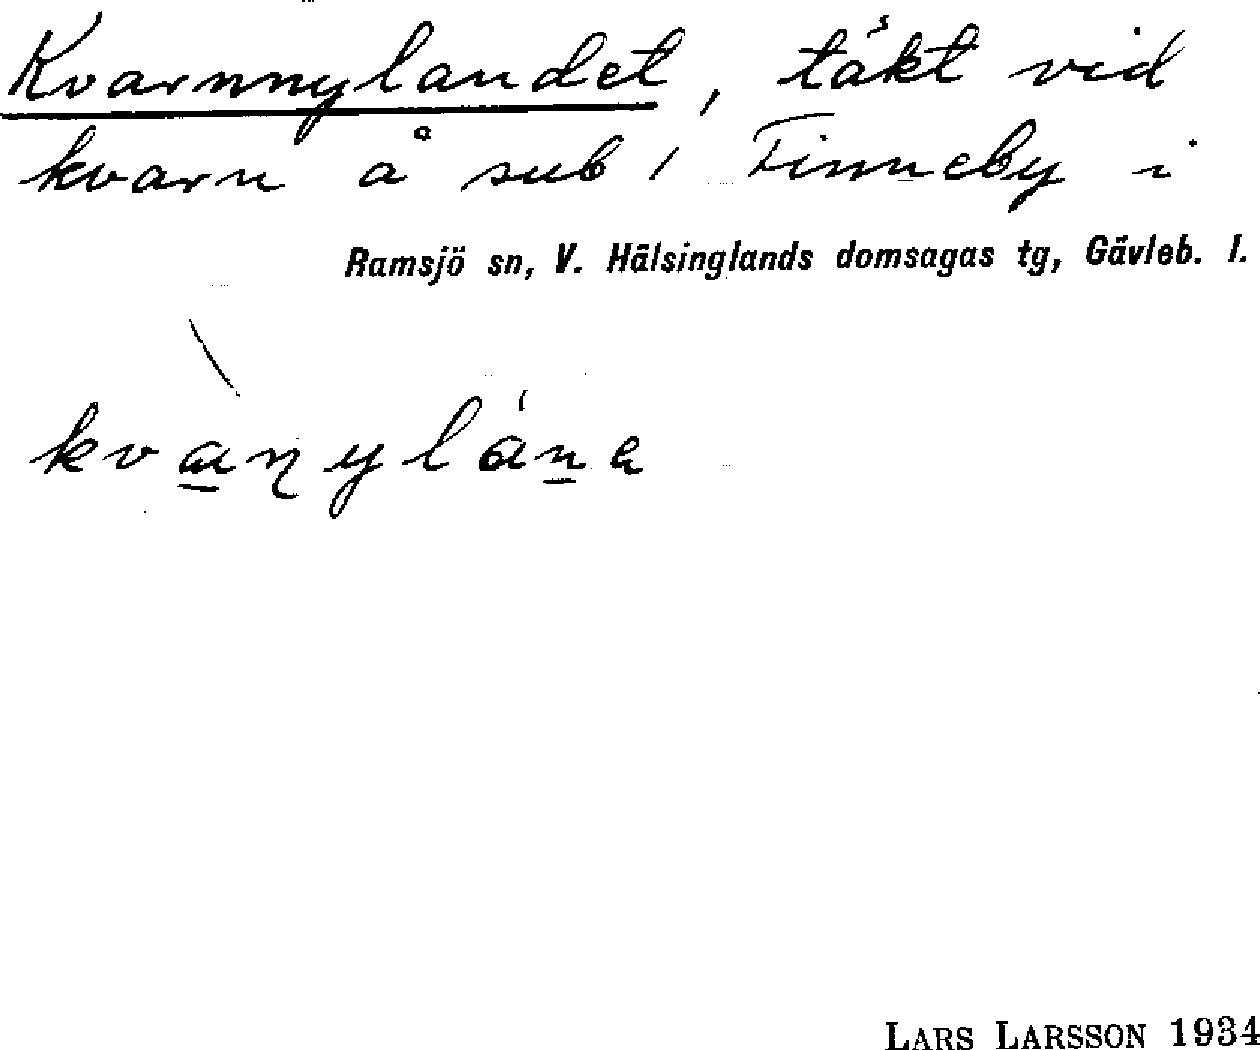 Kvarnnylandet, täkt vid
kvarn å sub 1 Finneby i
Ramsjö sn, V. Hälsinglands domsagas tg, Gävleb. l.
LARS LARSSON 1934